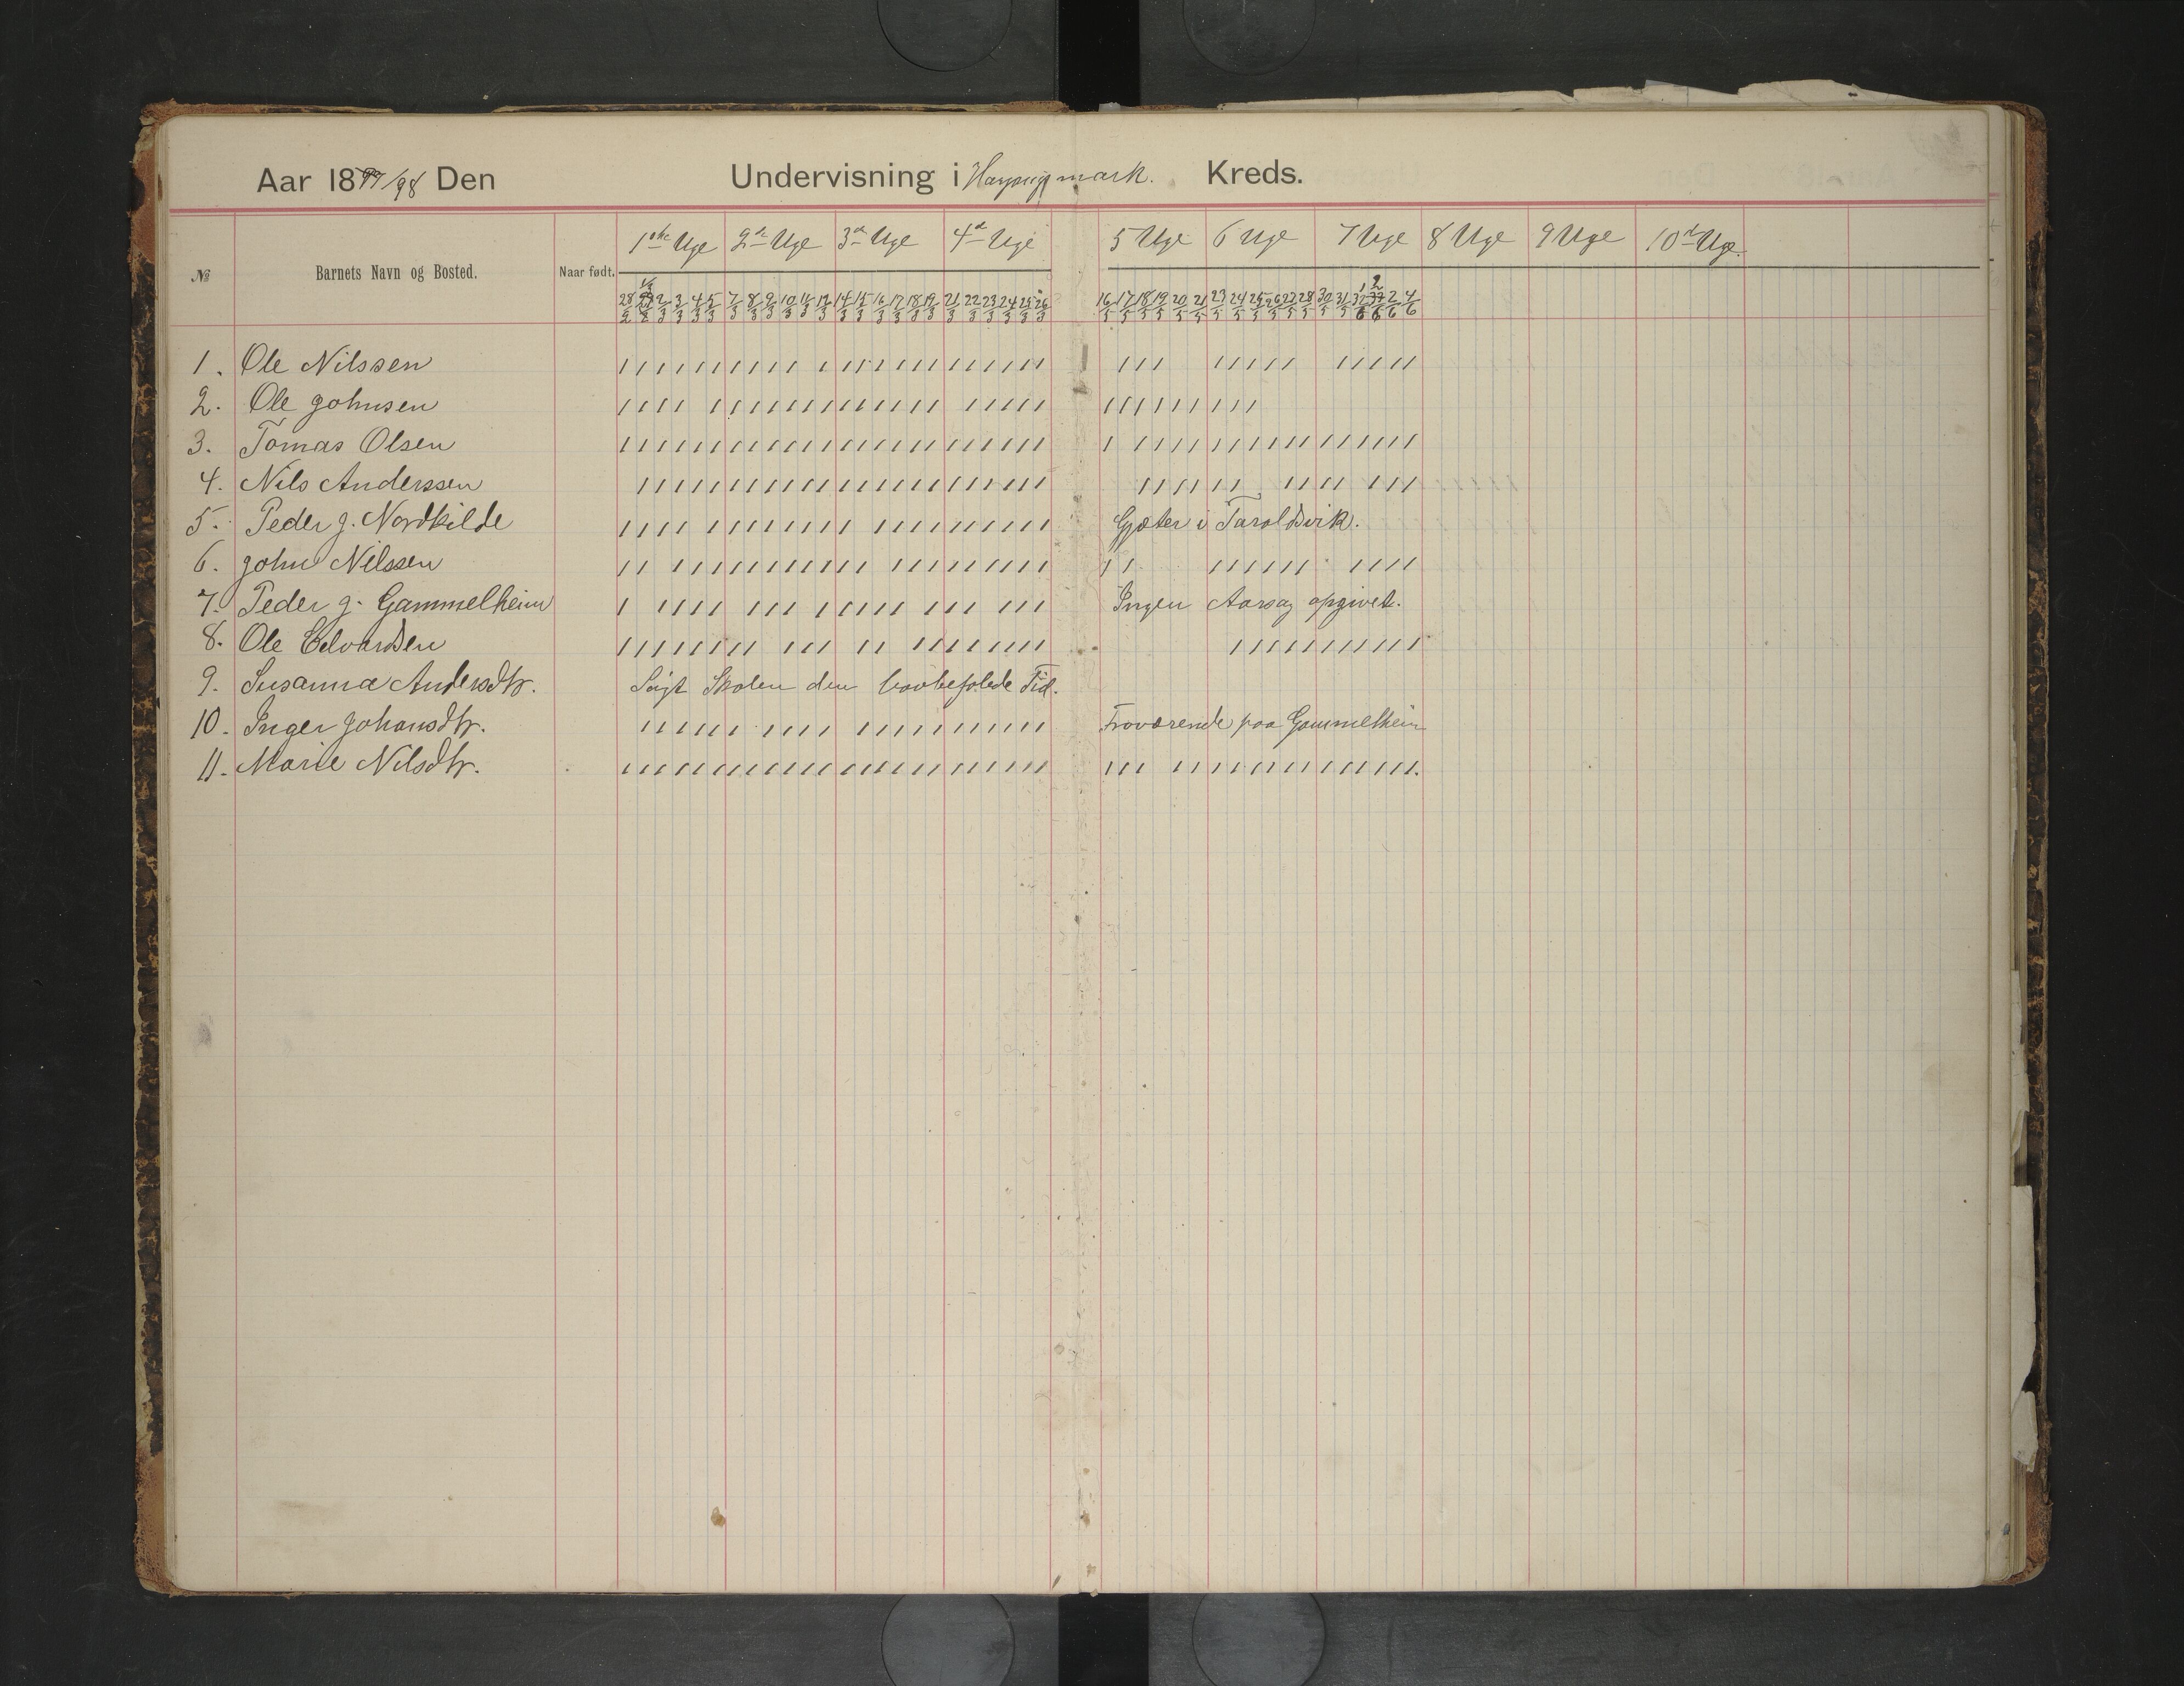 Aar 1897/98 Den Undervisning i mark. Kreds.
1ste Uge 2de Uge 3de Uge 4de Uge 5 Uge 6 Uge 7 Uge 8 Uge 9 Uge 10de Uge.
№ Barnets Navn og Bosted. Naar født.
28/2 1/3 2/3 3/3 4/3 5/3 7/3 8/3 9/3 10/3 11/3 12/3 14/3 15/3 16/3 17/3 18/3 19/3 21/3 22/3 23/3 24/3 25/3 26/3 16/5 17/5 18/5 19/5 20/5 21/5 23/5 24/5 25/5 26/5 27/5 28/5 30/5 31/5 4/6
1. Ole Nilssen
2. Ole Johnsen
3. Tomas Olsen
4. Nils Anderssen
5. Peder J. Nordkilde Gjæter i Taraldsvik.
6. John Nilssen
7. Peder J. Gammelheim Ingen Aarsag opgivet.
8. Ole Edvardsen
9. Susanna Andersdtr. Søgt Skolen den lovbefalede Tid.
10. Inger Johansdtr. Fraværende paa Gammelheim
11. Marie Nilsdtr.